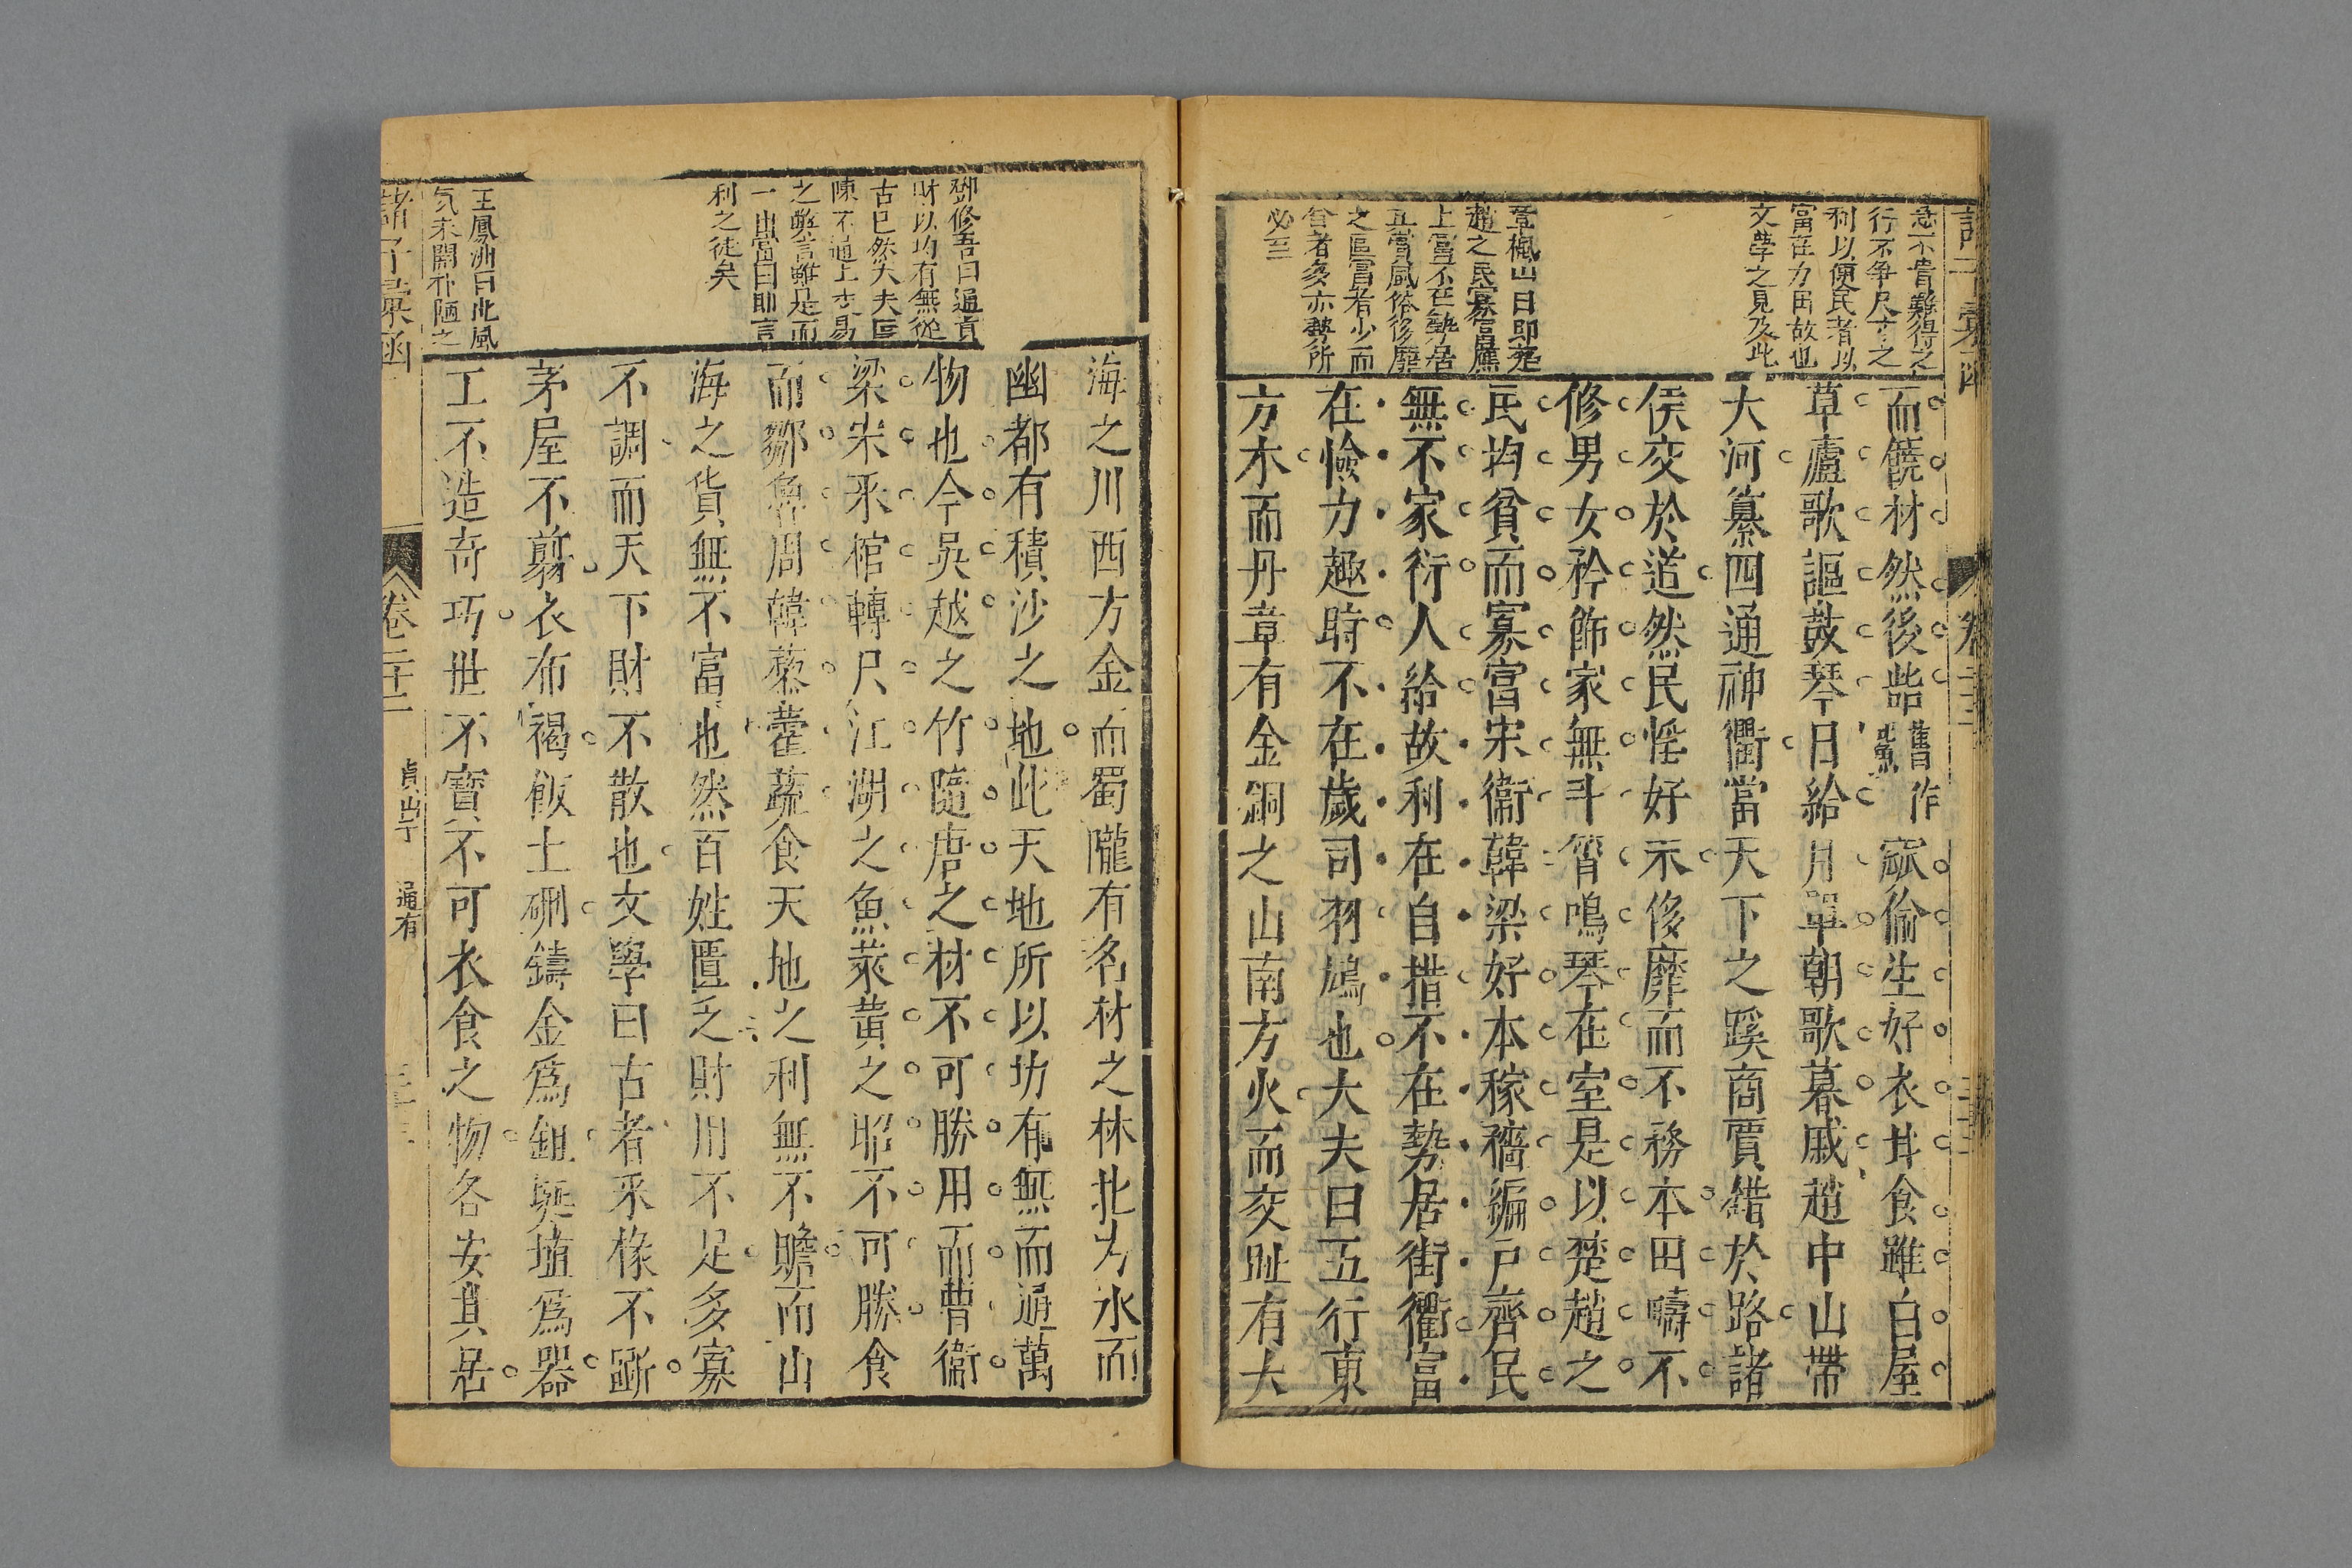 急不貴難得之
行不爭尺寸之
利以便民者以
富在力田故也
文學之見及此
章楓山曰即楚
趙之民寡富雁
上富不在勢居
五當咸俗侈靡
之區富者少而
貧者多亦勢所
必至
而饒材然後呰舊作鮆窳偷生好衣甘食雖白屋
草廬歌謳鼓琴日給月單朝歌暮戚趙中山帶
大河纂四通神衢當天下之蹊商賈錯於路諸
侯交於道然民淫好示侈靡而不務本田疇不
修男女矜飾家無斗筲鳴琴在室是以楚趙之
民均貧而寡富宋衞韓梁好本稼穡編戸齊民
無不家衍人給故利在自措不在勢居街衢富
在儉力趣時不在歲司羽鳩也大夫曰五行東
方木而丹章有金銅之山南方火而交趾有大
鄧修吾曰通貨
財以均有無從
古已然大夫臣
陳不通上古易
之弊言雖是而
一出當曰即言
利之徒矣
王鳳洲曰此風
氣未開朴陋之
海之川西方金而蜀隴有名材之林北方水而
幽都有積沙之地此天地所以均有無而通萬
物也今吳越之竹隨唐之材不可勝用而曹衞
梁宋采棺轉尺江湖之魚萊黃之鮐不可勝食
而鄒魯周韓藜藿蔬食天地之利無不贍而山
海之貨無不富也然百姓匱乏財用不足多寡
不調而天下財不散也文學曰古者采椽不斲
茅屋不翦衣布褐飯土硎鑄金爲鉏埏埴爲器
工不造奇巧世不寶不可衣食之物各安其居
諸子彙函
卷二十二
貞山子
通有